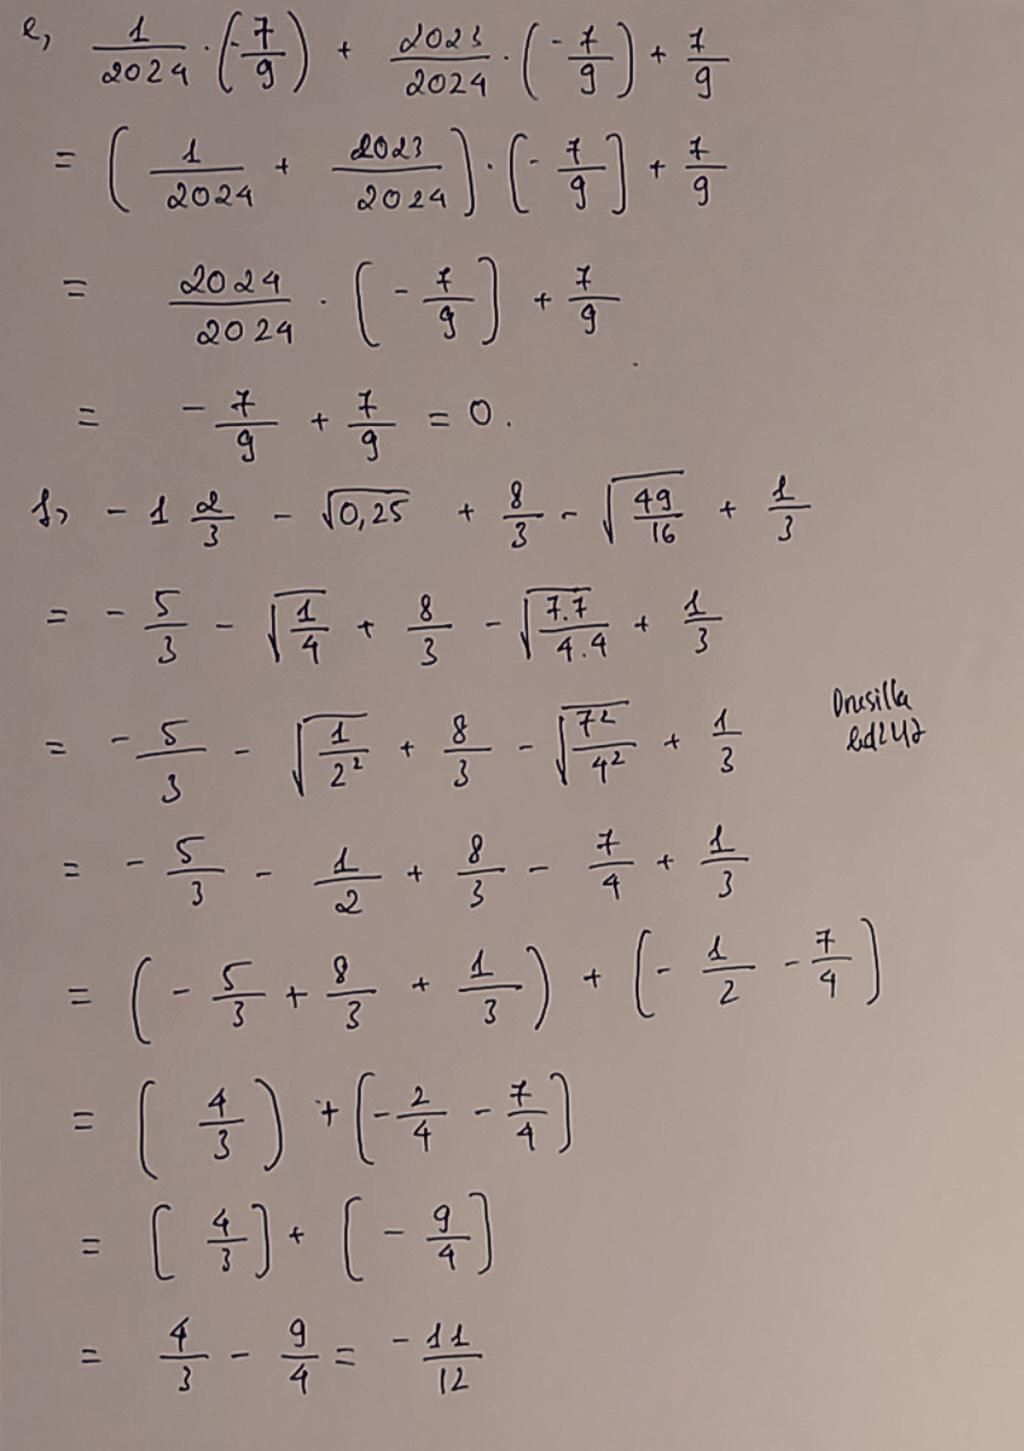 e, 1/2024 . (-7/9) + 2023/2024 . (-7/9) + 7/9
= (1/2024 + 2023/2024) . (-7/9) + 7/9
= 2024/2024 . (-7/9) + 7/9
= -7/9 + 7/9 = 0.
f, -1 2/3 - √0,25 + 8/3 - √(49/16) + 1/3
= -5/3 - √(1/4) + 8/3 - √(7.7/4.4) + 1/3
= -5/3 - √(1/2²) + 8/3 - √(7²/4²) + 1/3
Drusilla
= -5/3 - 1/2 + 8/3 - 7/4 + 1/3
= (-5/3 + 8/3 + 1/3) + (-1/2 - 7/4)
= (4/3) + (-2/4 - 7/4)
= (4/3) + (-9/4)
= 4/3 - 9/4 = -11/12